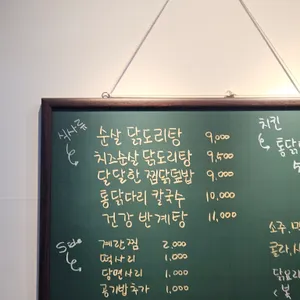 식사류
순살 닭도리탕 9,000
치즈순살 닭도리탕 9,500
달달한 찜닭덮밥 9,000
통닭다리 칼국수 10,000
건강 반계탕 11,000
계란찜 2,000
떡사리 1,000
당면사리 1,000
공기밥추가 1,000
치킨
통닭
소주,
콜라,